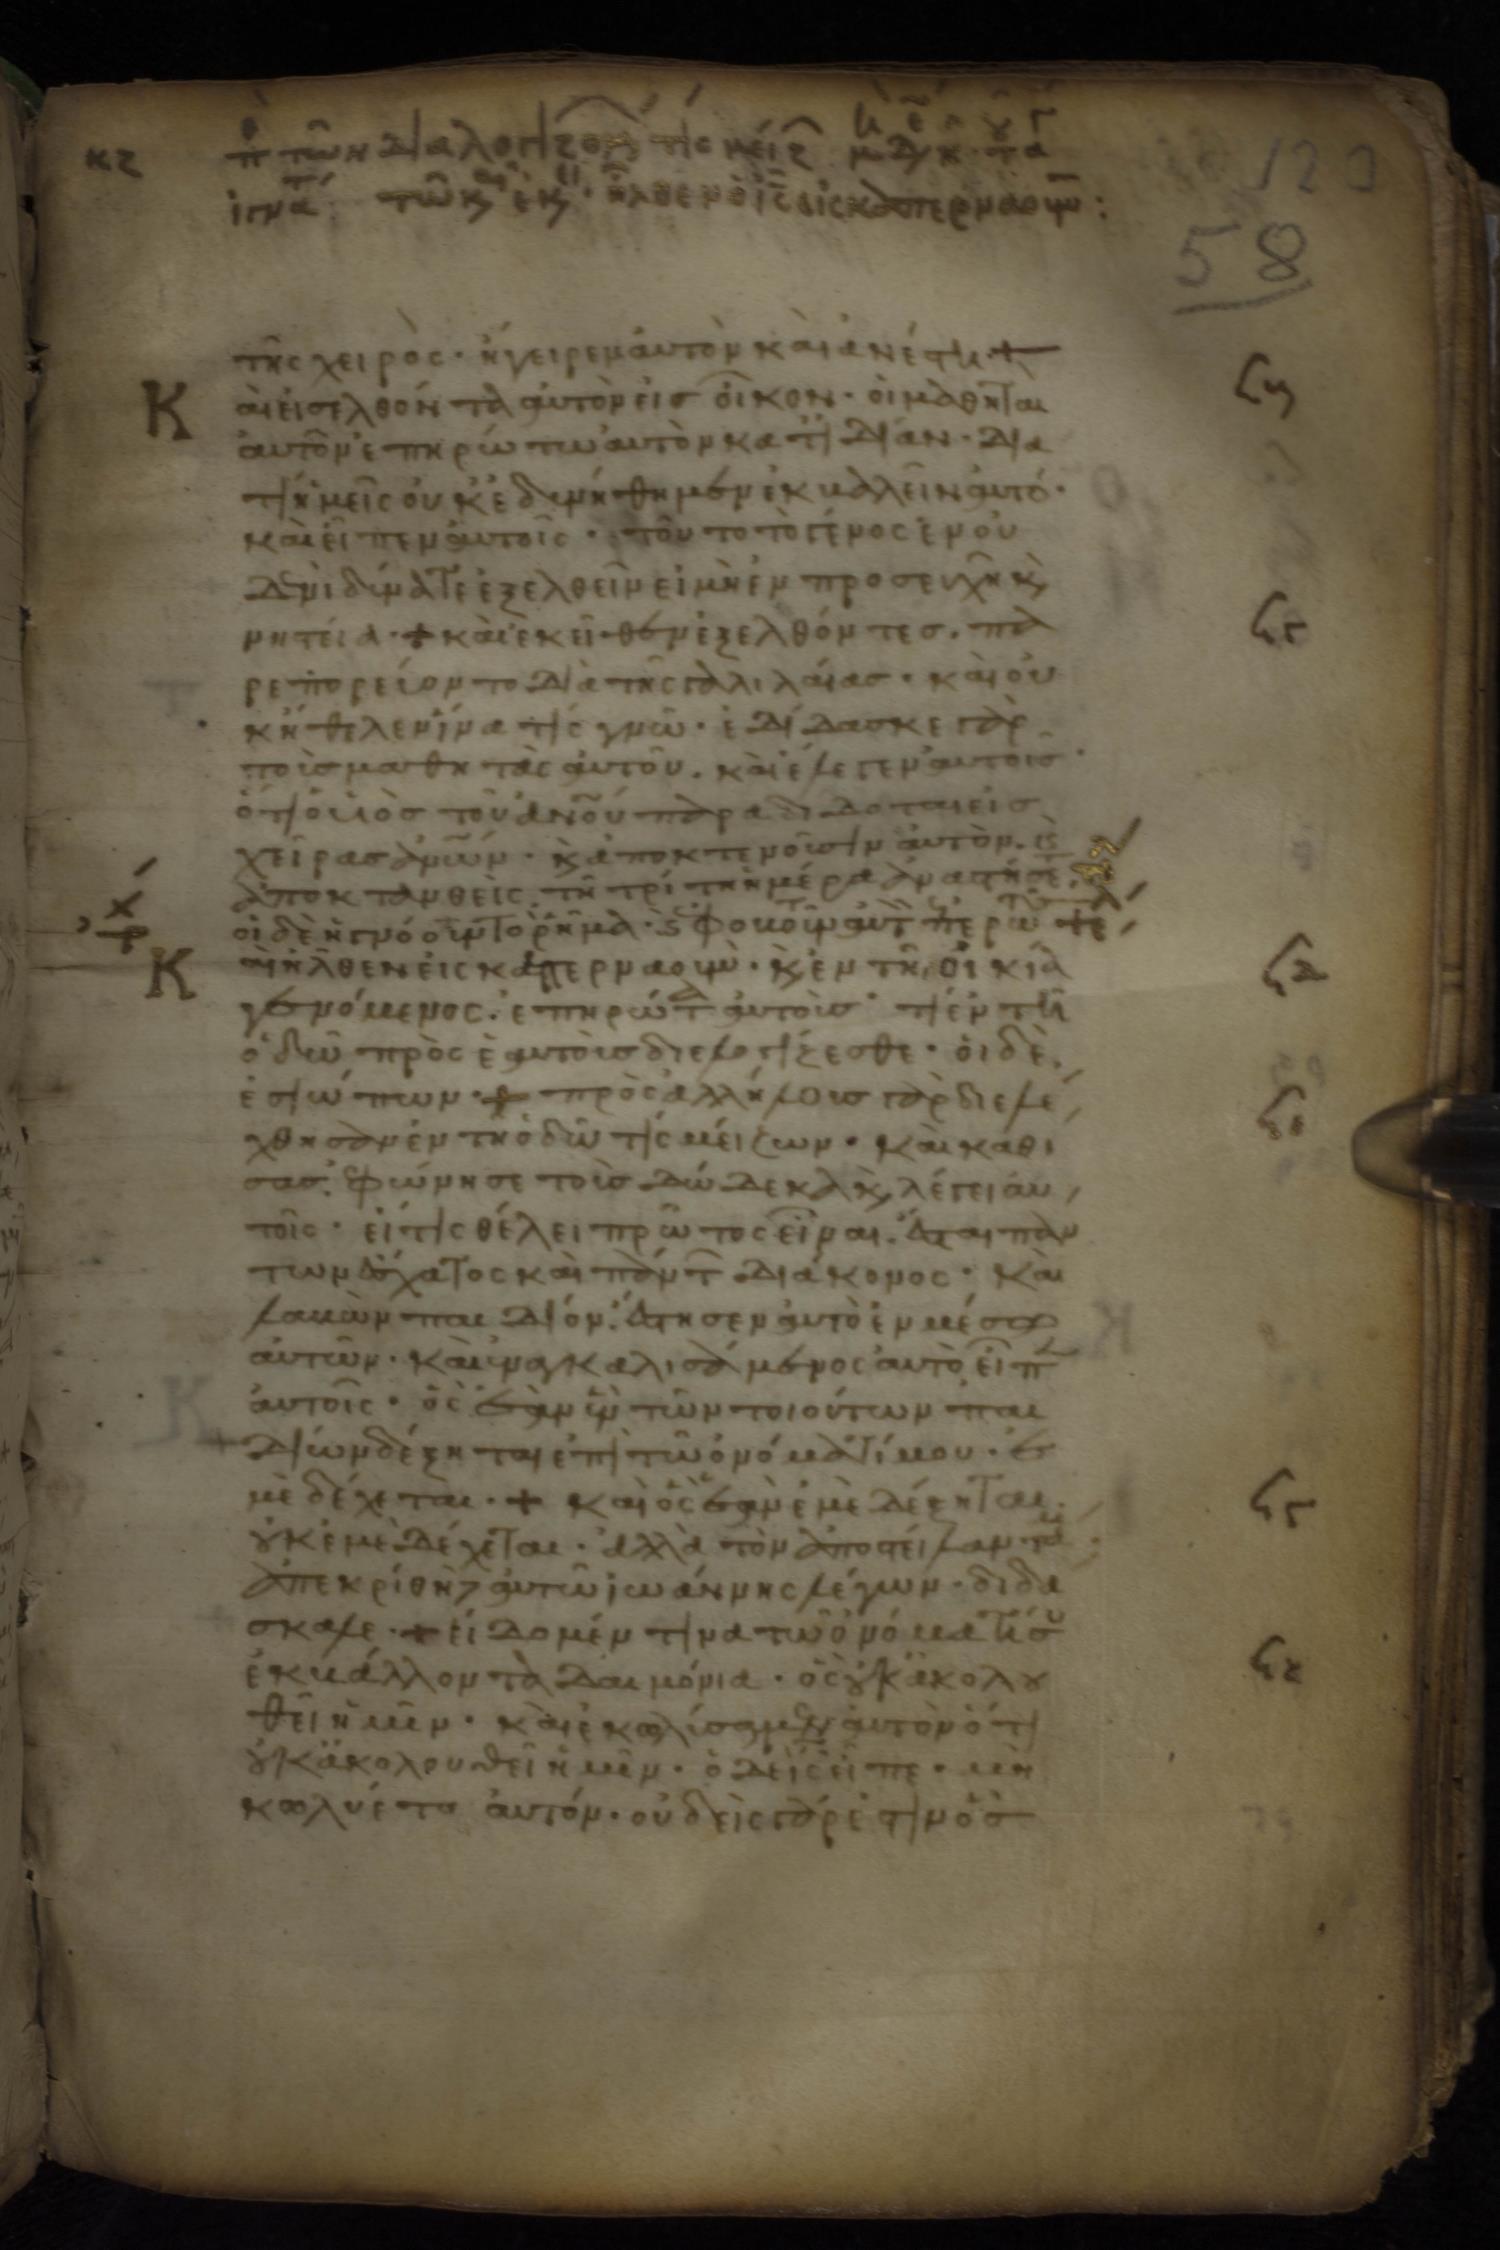 κζ
π τῶν διαλογιζομ τίς μείζ
120
58
τῆς χειρὸς · ἤγειρεν αὐτὸν καὶ ἀνέστη · +
Κ αὶ εἰσελθόντα αὐτὸν εἰς οἶκον · οἱ μαθηταὶ
αὐτοῦ ἐπηρώτων αὐτὸν κατ ἰδίαν · δια
τί ἡμεῖς οὐκ ἐδυνήθημεν ἐκβαλεῖν αὐτό ·
καὶ εἶπεν αὐτοῖς · τοῦτο τὸ γένος ἐν οὐ
δενὶ δύναται ἐξελθεῖν εἰ μὴ ἐν προσευχῆ κ
νηστεία · + κἀκεῖθεν ἐξελθόντες · πα
ρεπορεύοντο διὰ τῆς γαλιλαίας · καὶ οὐ
κ ἤθελεν ἵνα τίς γνῶ · ἐδίδασκε γὰρ
τοὺς μαθητὰς αὐτοῦ · καὶ ἔλεγεν αὐτοῖς
ὅτι ὁ υἱὸς τοῦ ἀνου παραδίδοται εἰς
χεῖρας ἀνων · κ ἀποκτενοῦσιν αὐτὸν · κ
ἀποκτανθεὶς · τῆ τρίτη ἡμέρα ἀναστήσετ
οἱ δὲ ἠγνόουν τὸ ρῆμα · κ ἐφοβοῦν αὐτ ἐπερωτ
Κ αὶ ἦλθεν εἰς καπερναουμ · κ ἐν τῆ οἰκία
γενόμενος · ἐπηρώτα αὐτοὺς · τί ἐν τῆ
ὁδῶ πρὸς ἑαυτοὺς διελογίζεσθε · οἱ δὲ
ἐσιώπων · + πρὸς ἀλλήλους γὰρ διελέ
χθησαν ἐν τῆ ὁδῶ τίς μείζων · καὶ καθί
σας · ἐφώνησε τοὺς δώδεκα κ λέγει αυ
τοῖς · εἴ τις θέλει πρῶτος εἶναι · ἔσται παν
των ἔσχατος καὶ πάντ διάκονος · καὶ
λαβὼν παιδίον · ἔστησεν αὐτὸ ἐν μέσω
αὐτῶν · καὶ ἐναγκαλισάμενος αὐτὸ εἶπ
αὐτοῖς · ὃς ἐὰν ἓν τῶν τοιούτων παι
δίων δέξηται ἐπὶ τῶ ὀνόματί μου · ἐ
μὲ δέχεται · + καὶ ὃς ἐὰν ἐμὲ δέξηται ·
οὐκ ἐμὲ δέχεται · ἀλλὰ τὸν ἀποστείλαντα με ·
ἀπεκρίθη αὐτῶ ἰωάννης λέγων · διδά
σκαλε · + εἴδομέν τινα τῶ ὀνόματί σου
ἐκβάλλοντα δαιμόνια · ὃς οὐκ ἀκολου
θεῖ ἡμῖν · καὶ ἐκωλύσαμεν αὐτὸν ὅτι
οὐκ ἀκολουθεῖ ἡμῖν · ὁ δὲ ις εἶπε · μὴ
κωλύετε αὐτόν · οὐδεὶς γάρ ἐστιν ὃς